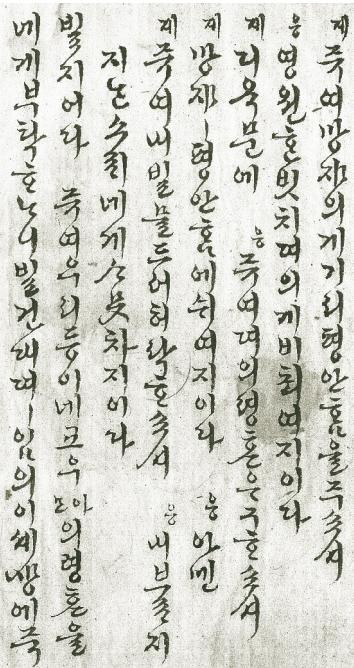 계 쥬여 망쟈의게 기리 평안ᄒᆞᆷ을 주쇼셔
응 영원ᄒᆞᆫ 빗치 뎌의게 비최여지이다
계 디옥문에 응 쥬여 뎌의 령혼은 구ᄒᆞ쇼셔
계 망쟈ㅣ 평안ᄒᆞᆷ에 쉬여지이다 응 아멘
계 쥬여 내 빌믈 드러 허락ᄒᆞ쇼셔 응 내 부ᄅᆞ지
지ᄂᆞᆫ 소ᄅᆡ 네게 ᄉᆞᄆᆞᆺ차지이다
빌지어다 쥬여 우리 등이 네 죵 모아의 령혼을
네게 부탁ᄒᆞ노니 빌건대 뎌ㅣ 임의 이 세샹에 죽